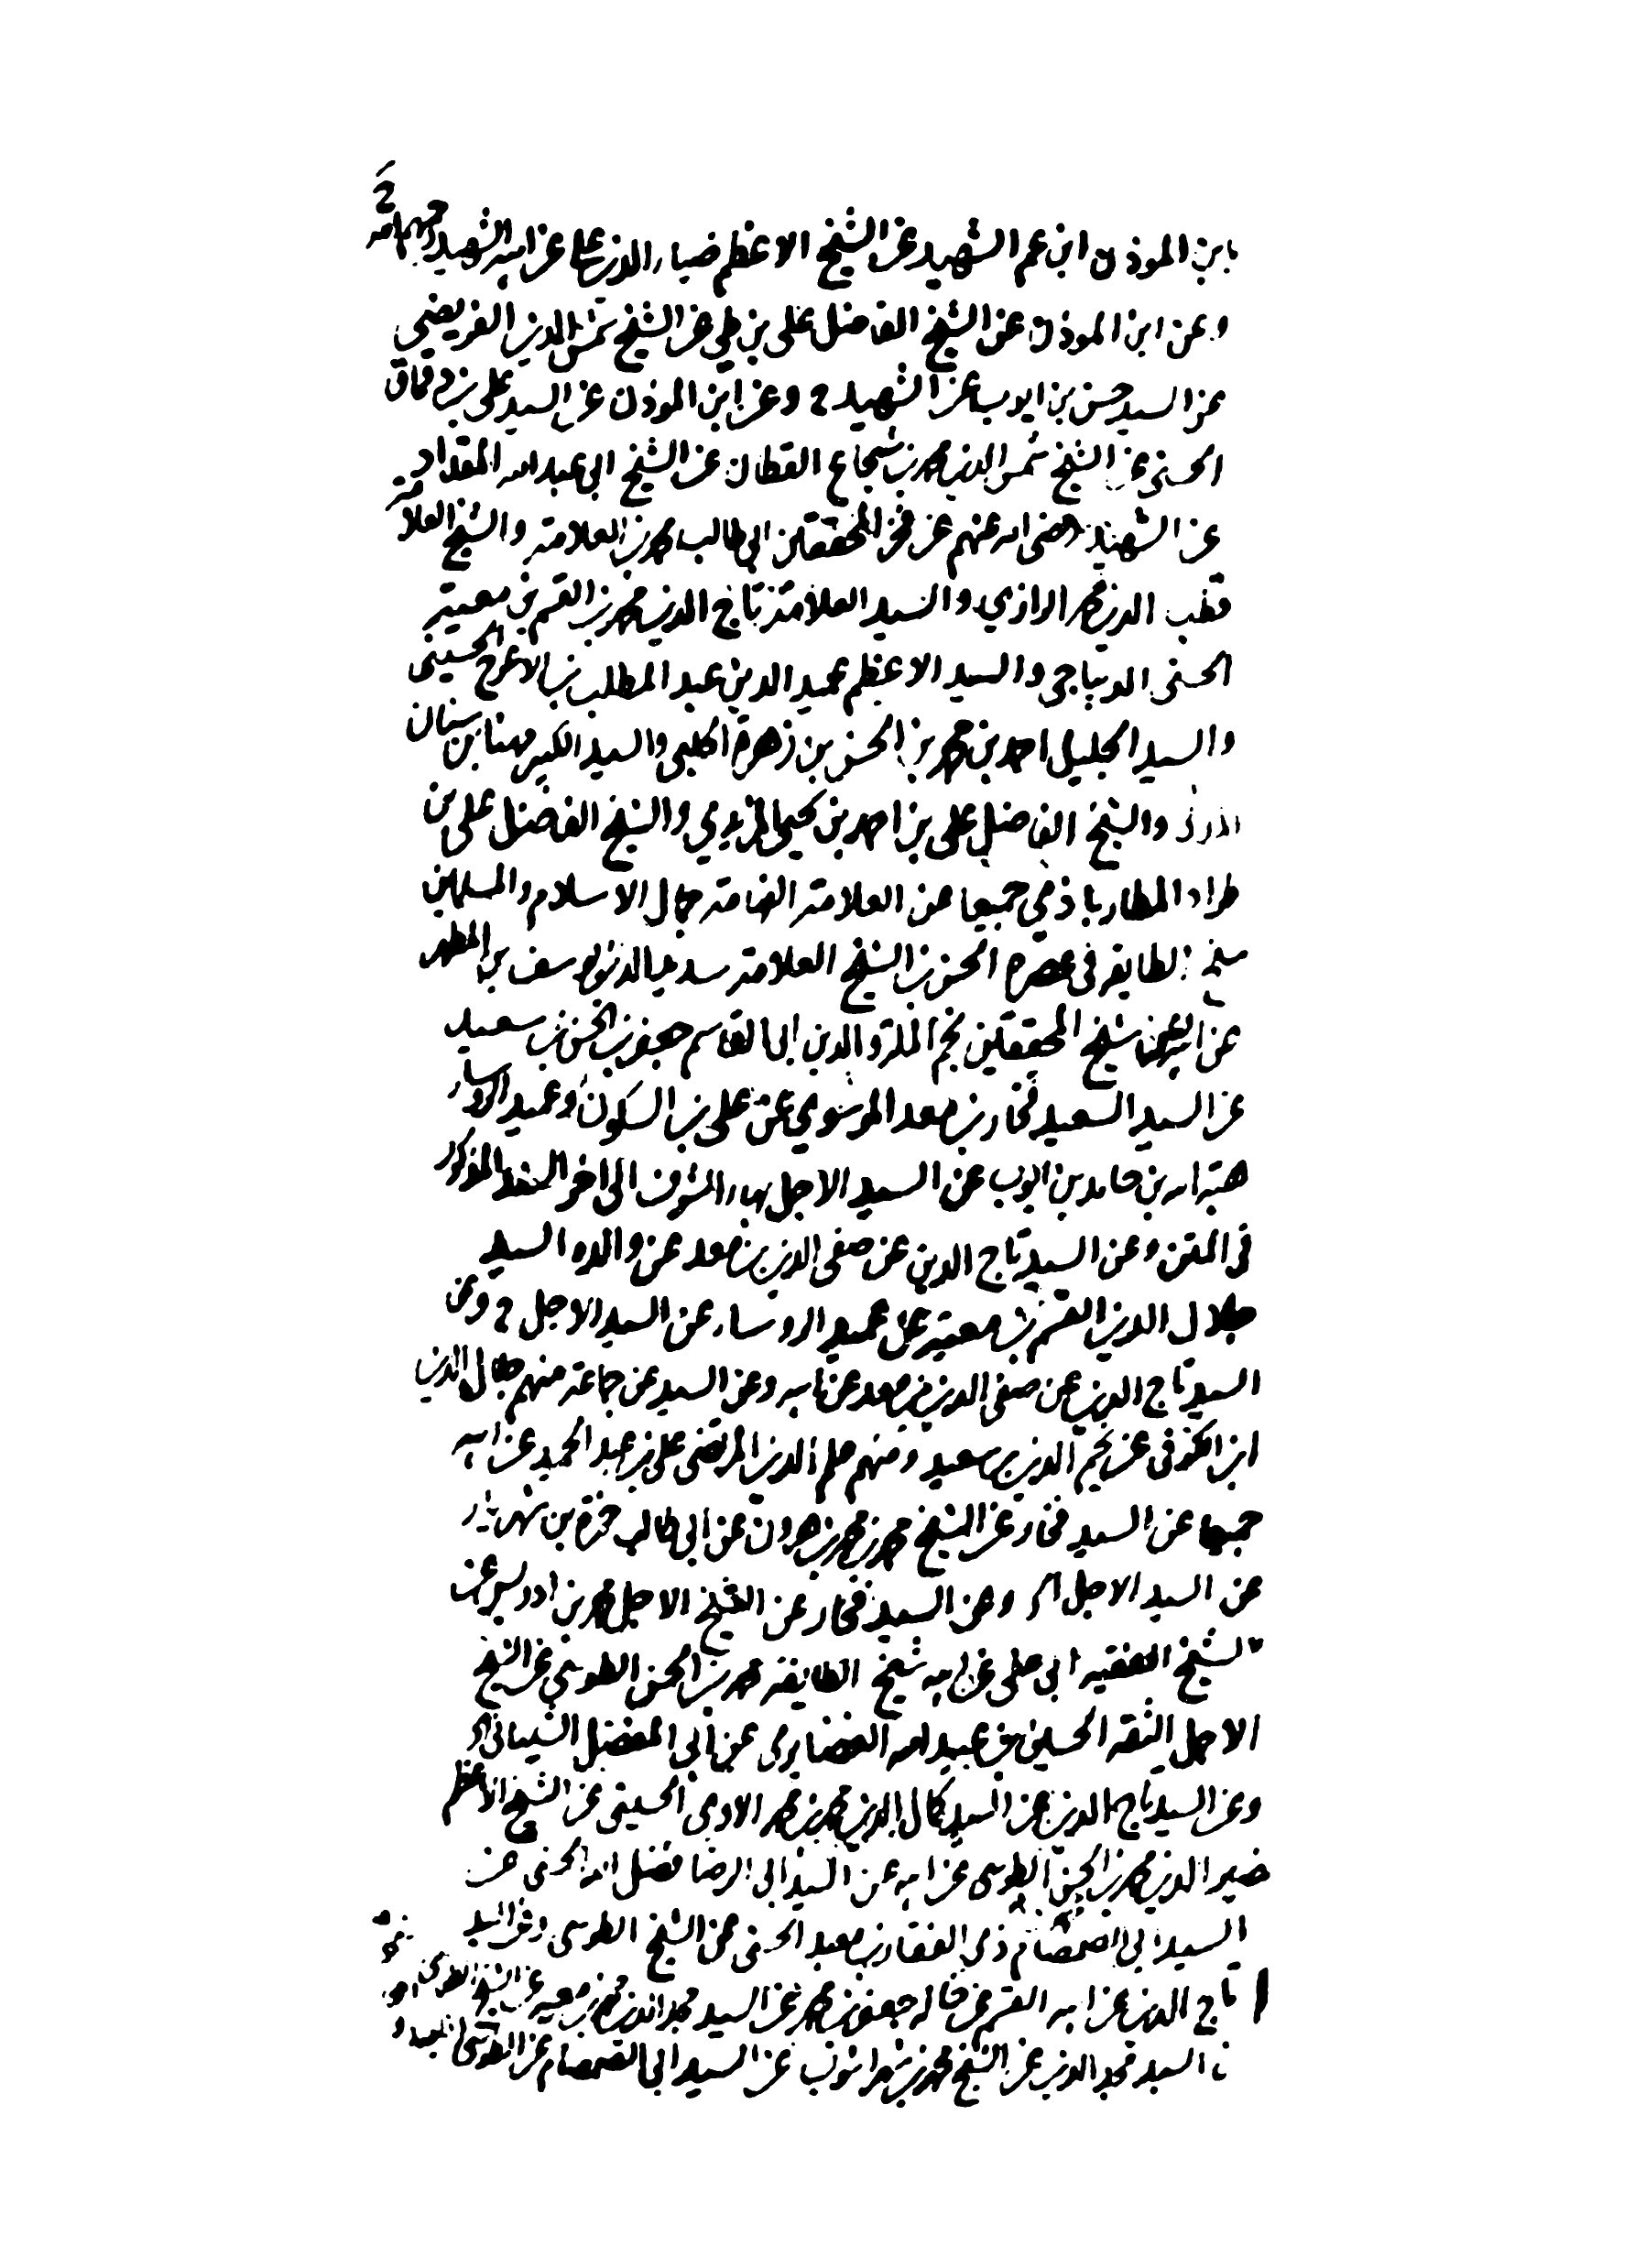 ابن الموذن ابن عم الشهيد عن الشيخ الاعظم ضياء الدين علي عن ابيه الشهيد رحمهم الله ح
وعن ابن الموذن عن الشيخ الفاضل علي بن طي عن الشيخ شمس الدين العريضي
عن السيد حسن بن ايوب عن الشهيد ح وعن ابن الموذن عن السيد علي بن دقماق
الحسني عن الشيخ شمس الدين محمد بن شجاع القطان عن الشيخ ابي عبد الله المقداد
عن الشهيد رضي الله عنهم عن فخر المحققين ابي طالب محمد بن العلامة والشيخ العلامة
قطب الدين محمد الرازي والسيد العلامة تاج الدين محمد بن القسم بن معية
الحسني الديباجي والسيد الاعظم عميد الدين عبد المطلب بن الاعرج الحسيني
والسيد الجليل احمد بن محمد بن الحسن بن زهرة الحلبي والسيد الكبير مهنا بن سنان
المدني والشيخ الفاضل علي بن احمد بن يحيى المزيدي والشيخ الفاضل علي بن
طراد المطارباذي جميعا عن العلامة الفهامة جمال الاسلام والمسلمين
شيخ الطايفة في عصره الحسن بن الشيخ العلامة سديد الدين يوسف بن المطهر
عن ابيه عن شيخ المحققين نجم الملة والدين ابي القاسم جعفر بن الحسن بن سعيد
عن السيد السعيد فخار بن معد الموسوي عن علي بن السكون وعميد الروساء
هبة الله بن حامد بن ايوب عن السيد الاجل بهاء الشرف الى اخر السند المذكور
في المتن وعن السيد تاج الدين عن صفي الدين بن معد عن والده السيد
جلال الدين القسم بن معية عن عميد الروساء عن السيد الاجل ح وعن
السيد تاج الدين عن صفي الدين بن معد عن ابيه وعن السيد عن جماعة منهم جلال الدين
ابن الكوفي عن نجم الدين بن سعيد ومنهم علم الدين المرتضى علي بن عبد الحميد عن ابيه
جميعا عن السيد فخار عن الشيخ محمد بن محمد بن هرون عن ابي طالب حمزة بن شهريار
عن السيد الاجل وعن السيد فخار عن الشيخ الاجل محمد بن ادريس عن
الشيخ الفقيه ابي علي عن ابيه شيخ الطايفة محمد بن الحسن الطوسي عن الشيخ
الاجل الثقة الحسين بن عبيد الله الغضايري عن ابي المفضل الشيباني
وعن السيد تاج الدين عن السيد كمال الدين محمد بن محمد الاوي الحسيني عن الشيخ الاعظم
نصير الدين محمد بن الحسن الطوسي عن ابيه عن السيد ابي الرضا فضل الله الحسني عن
السيد ابي الصمصام ذي الفقار بن معبد الحسني عن الشيخ الطوسي وعن السيد
تاج الدين عن ابيه القسم عن خاله جعفر بن محمد عن السيد مجد الدين محمد بن معية عن الشيخ الطوسي
السيد مجد الدين عن الشيخ محمد بن شهراشوب عن السيد ابي الصمصام عن الطوسي